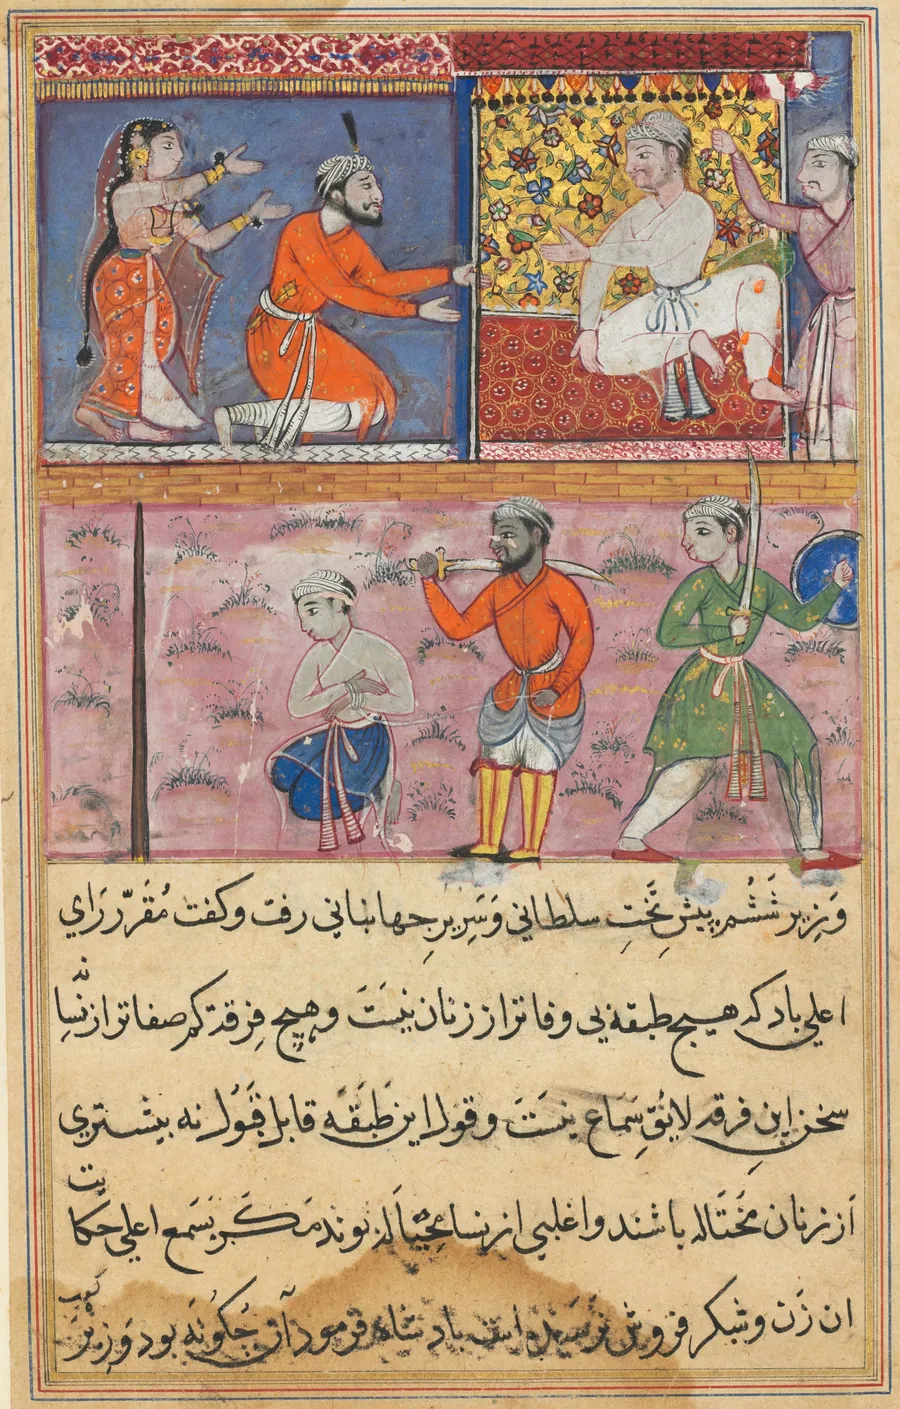 وَزِیرِ شَشُم پیشِ تَختِ سلطانی وَسَرِیرِ جهابنانی رفت وکفت مُقَرّر رَاي
اعلي باد که هیچ طبقه بی وفاتر از زنان نیستَ وهیچ فِرقه کم صفاتر از نّسِا نه
سخن اینِ فرقه لایقِ سَماع ینستَ وقول این طَبقَه قابل قَبوُل نه بیشتري
اَز زنان مُحَتاله باشند و اغلبي از نسا مُحِتاله بوند مَکَر بسَمع اعلي حکایت
ان زَن وشکر فروش نرَسیده است بادشاه فرمود آن جکونَه بود وَزِیر کفت